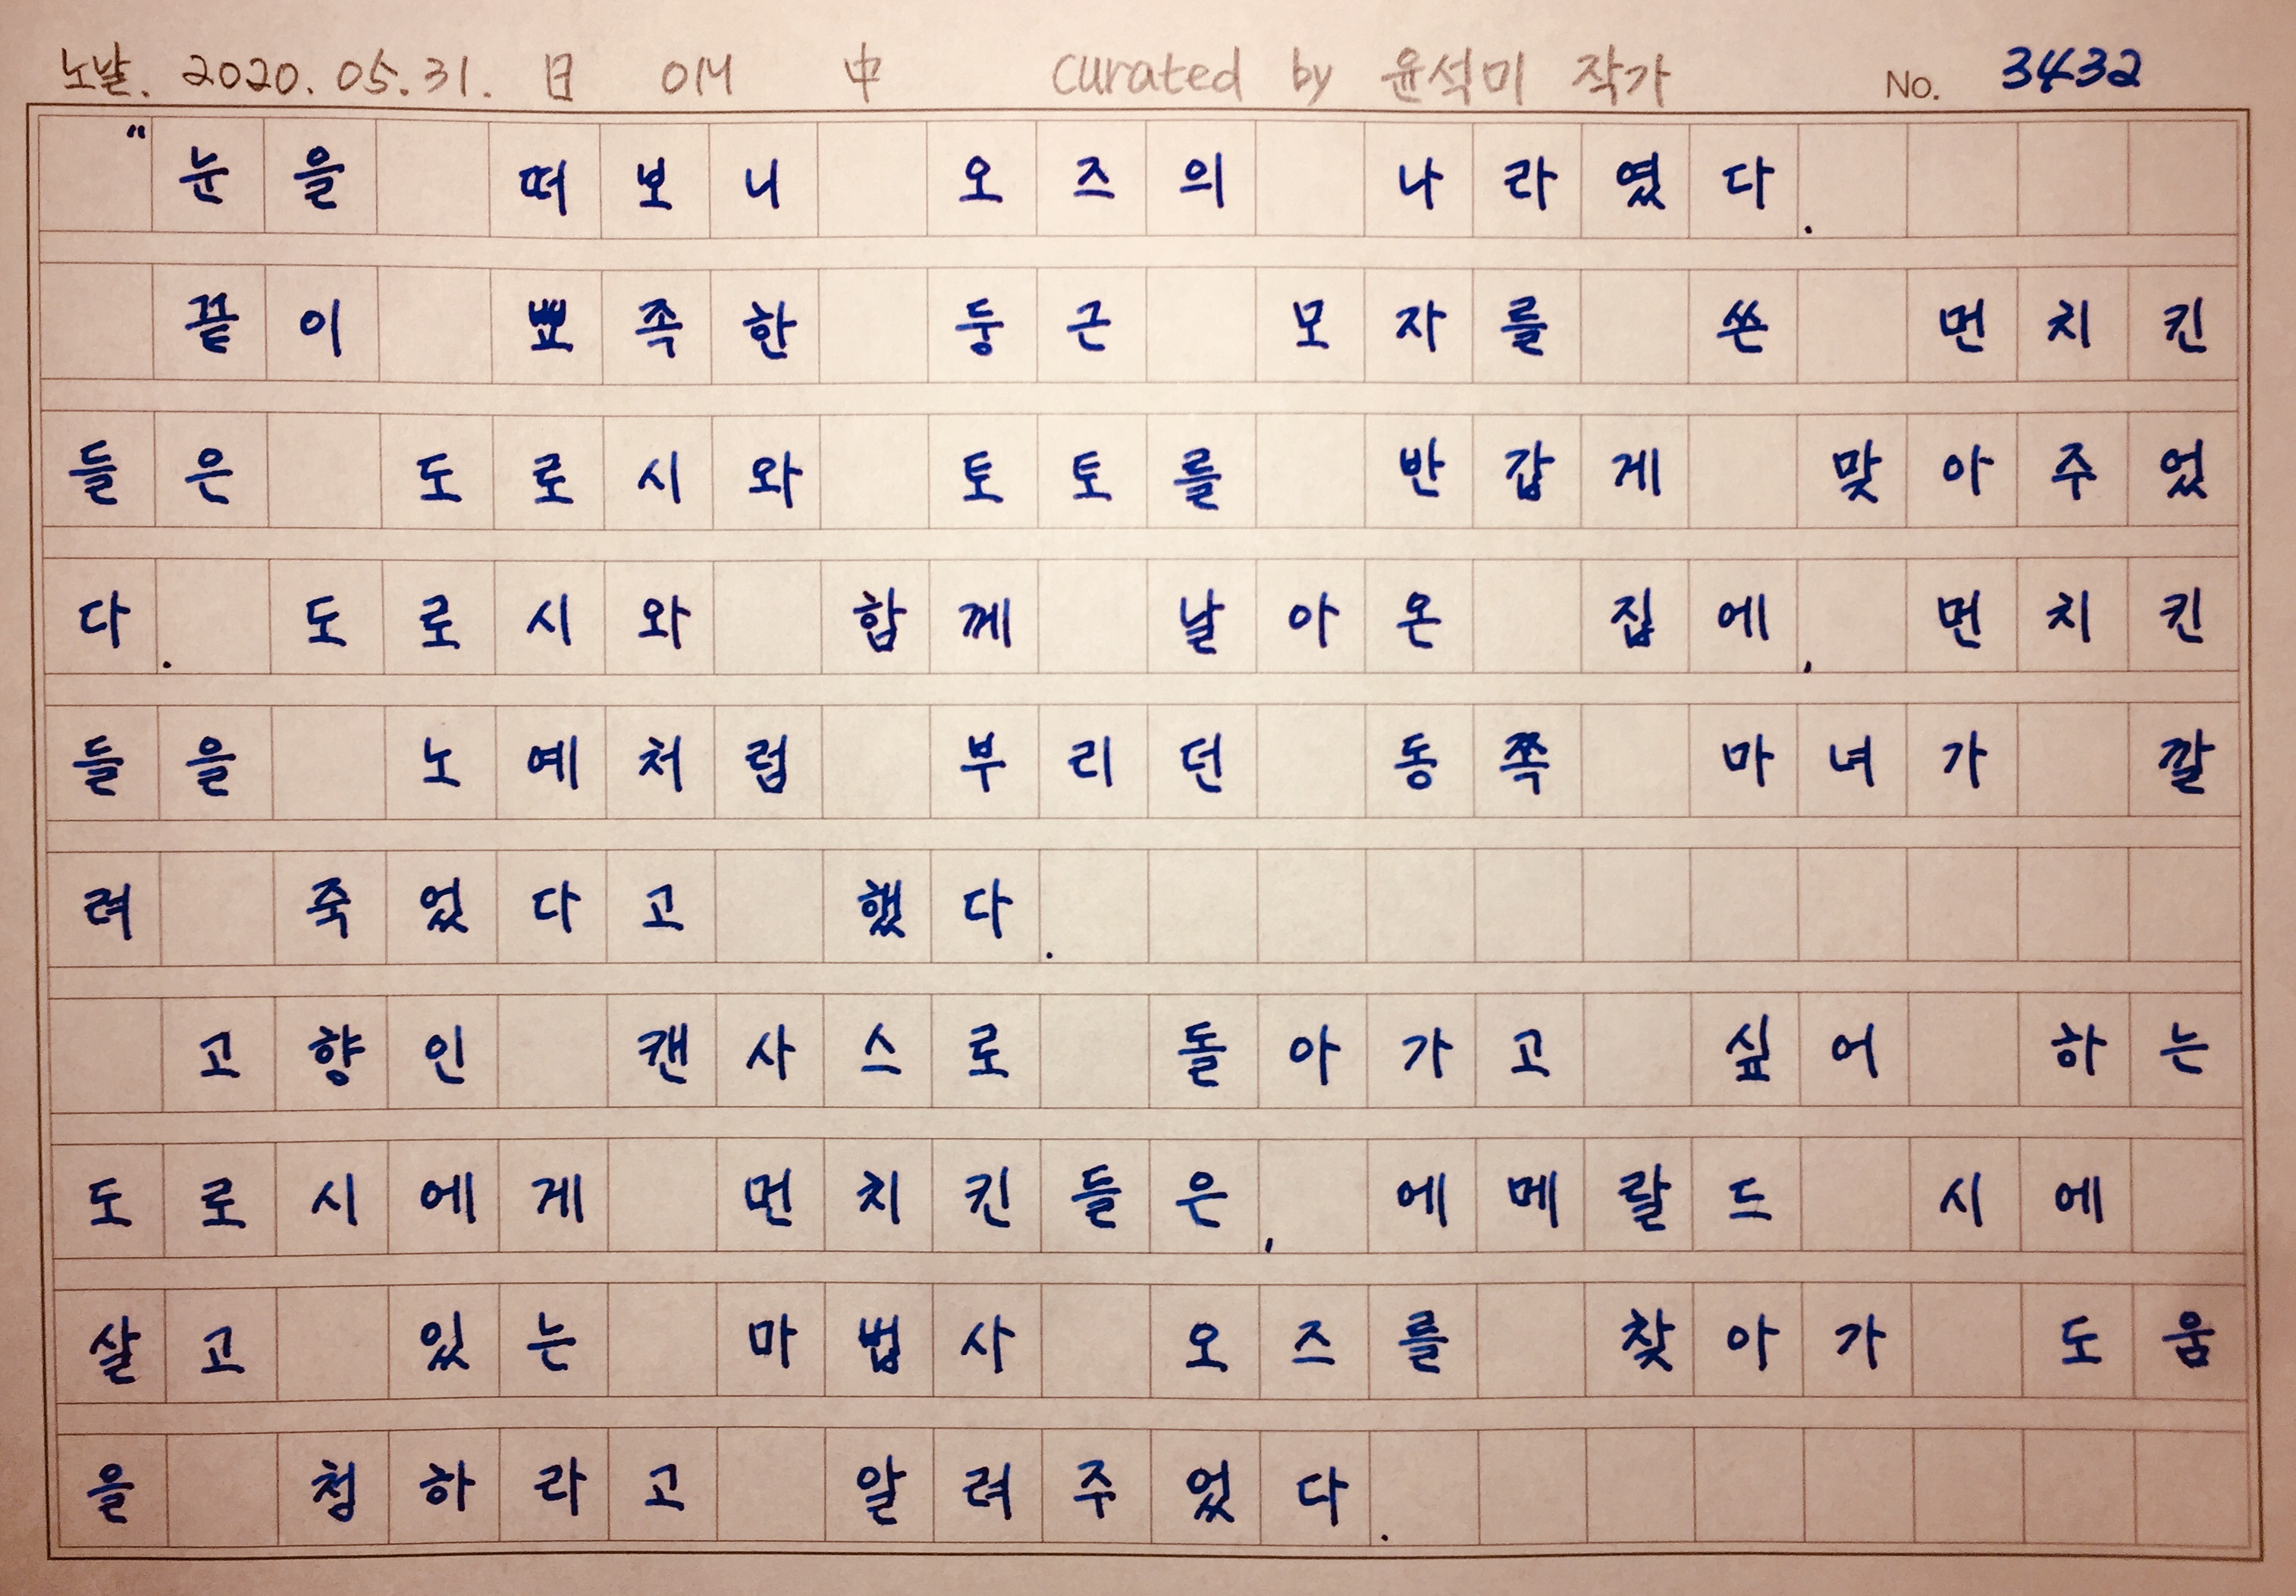 노날. 2020. 05. 31. 日 OM 中 curated by 윤석미 작가 No. 3432
"눈을 떠보니 오즈의 나라였다.
끝이 뾰족한 둥근 모자를 쓴 먼치킨
들은 도로시와 토토를 반갑게 맞아주었
다. 도로시와 함께 날아온 집에, 먼치킨
들을 노예처럼 부리던 동쪽 마녀가 깔
려 죽었다고 했다.
고향인 캔사스로 돌아가고 싶어 하는
도로시에게 먼치킨들은, 에메랄드 시에
살고 있는 마법사 오즈를 찾아가 도움
을 청하라고 알려주었다.